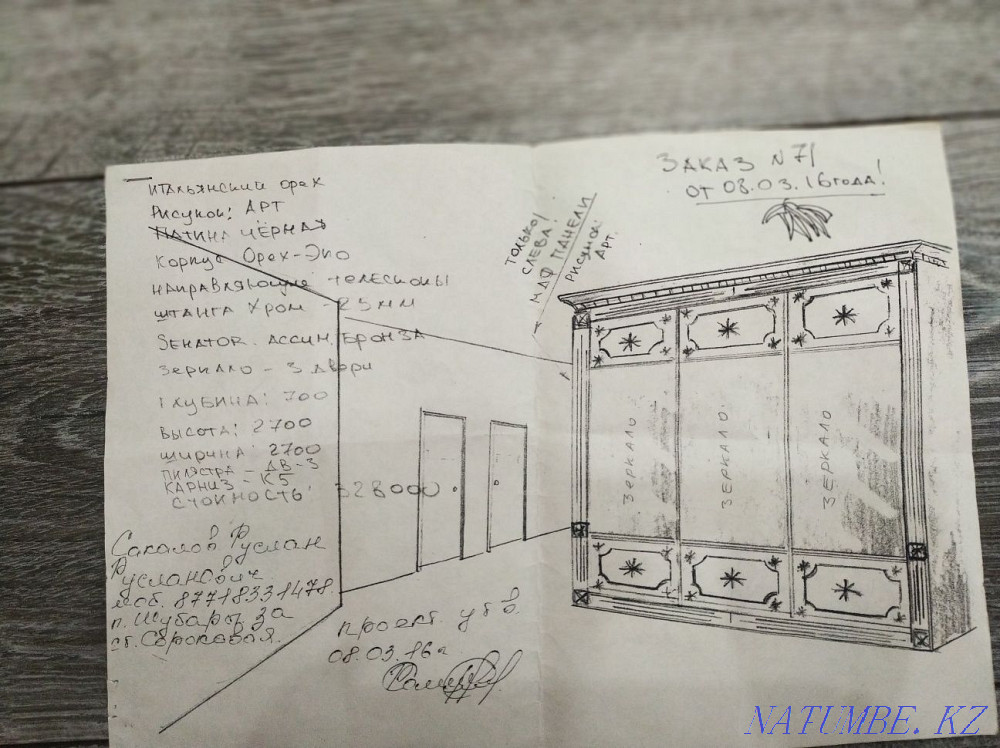 ИТАЛЬЯНСКИЙ ОРЕХ
РИСУНОК: АРТ
ПАТИНА ЧЁРНАЯ
КОРПУС ОРЕХ-ЭКО
НАПРАВЛЯЮЩИЕ ТЕЛЕСКОПЫ
ШТАНГА ХРОМ - 25ММ
SENATOR. АССИМ. БРОНЗА
ЗЕРКАЛО - 3 ДВЕРИ
ГЛУБИНА: 700
ВЫСОТА: 2700
ШИРИНА: 2700
ПИЛЯСТРА - ДВ-3
КАРНИЗ - К5
СТОИМОСТЬ: 328000
Руслан
Русланович
моб. 87718331478.
п. Шубары, за
проект. утв.
08.03.16г.
ТОЛЬКО!
СЛЕВА!
МДФ ПАНЕЛИ
РИСУНОК:
АРТ.
ЗАКАЗ N71
ОТ 08.03.16 года!
ЗЕРКАЛО
ЗЕРКАЛО
ЗЕРКАЛО
NATUMBE.KZ